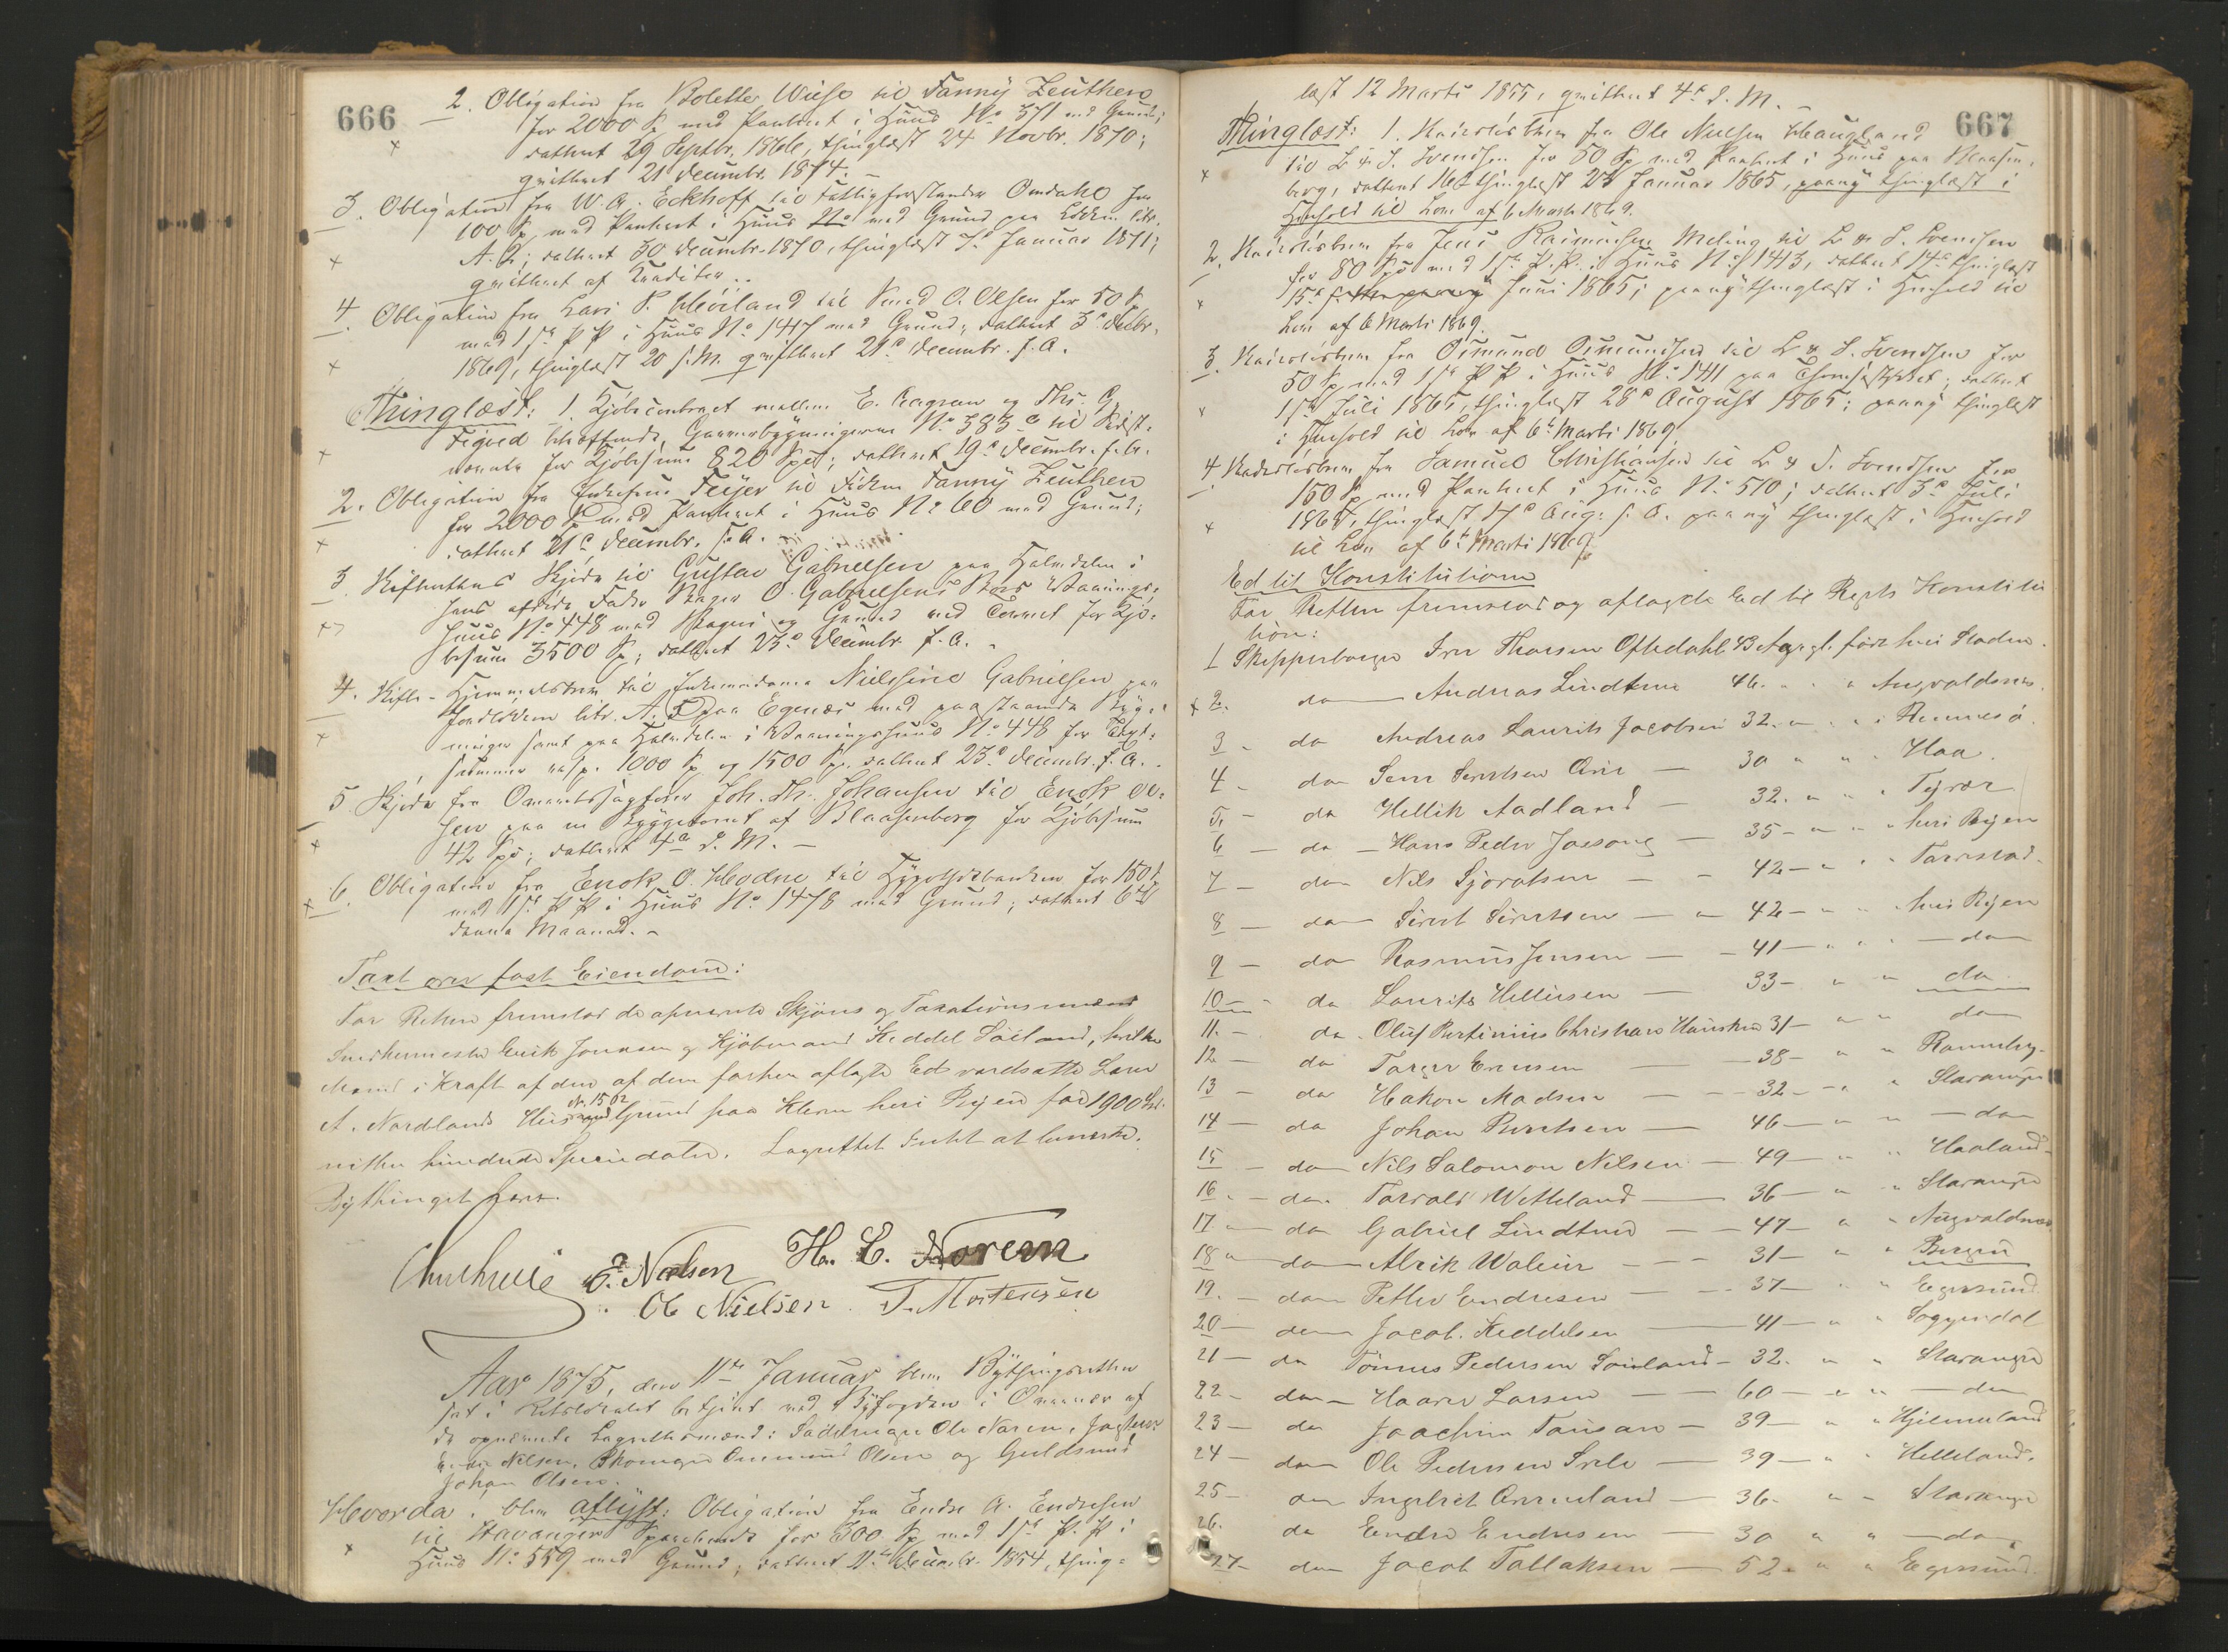 666
2. Obligation fra Bolette Wiese til Fanny Zeuthen
for 2000 Sp med Panteret i Huus No 371 med Grund;
dateret 29 Septbr. 1866, thinglæst 24 Novbr. 1870;
qvitteret 21 Decembr. 1874.
3. Obligation fra W. A. Eckhoff til Fattigforstander Omdahl for
100 Sp med Panteret i Huus No med Grund paa Løkken litr.
A. ; dateret 30 Decembr. 1870, thinglæst 7d Januar 1871;
qvitteret af Kreditor.
4. Obligation fra Lars P. Høiland til Smed O. Olsen for 50 Sp
med 1st P P i Huus No 1417 med Grund; dateret 3d Decbr.
1869, thinglæst 20 s. M. qvitteret 21d Decembr. f. A.
Thinglæst: 1. Kjøbecontract mellem E. Aagreen og Ths. G.
Figved betræffende Garverbygningerne No 383 c til Sidst-
nævnte for Kjøbesum 820 Spd; dateret 19d Decembr. f. A.
2. Obligation fra Feyer til Frøken Fanny Zeuthen
for 2000 Sp med Panteret i Huus No 60 med Grund;
dateret 21d Decembr. f. A.
3. Skifterettens Skjøde til Gustav Gabrielsen paa Halvdelen i
hans afdøde Fader Bager O. Gabrielsens Boes Vaanings-
huus No 448 med Bageri og Grund med Torvret for Kjø-
besum 3500 Sp; dateret 23d Decembr. f. A.
4. Skifte-Hjemmelsbrev til Enkemadame Nielsine Gabrielsen paa
Jordløkken litr. A. 5 paa Egenæs med paastaaende Byg-
ninger samt paa Halvdelen i Vaaningshuus No 448 for Taxt-
summer resp. 1000 Sp og 1500 Sp. dateret 23d Decembr. f. A.
5. Skjøde fra Overretssagfører Joh. Th. Johansen til Enok Ol-
sen paa en Byggetomt af Blaasenborg for Kjøbesum
42 Spd; dateret 4de d. M.
6. Obligation fra Enok O. Hodne til Hypothekbanken for 150
med 1st P P i Huus No 1478 med Grund; dateret 6te
denne Maaned.
Taxt over fast Eiendom:
For Retten fremstod de opnævnte Skjøns og Taxationsmænd
Snedkermester Erik Jonassen og Kjøbmand Keddel Soiland, hvilke
Mænd i Kraft af den af dem forhen aflagte Ed vardsatte Lars
A. Nordlands Huus No 1502 med Grund paa Kleven heri Byen for 1900 Spd.
nitten hundrede Speciedaler. Lagrettet Intet at bemærke.
Bythinget hævet.
E. Nielsen H. C. Noreen
Ole Nielsen T. Mortensen
Aar 1875, den 11te Januar blev Bythingsretten
sat i Retslokalet betjent ved Byfogden i Overvær af
de opnævnte Lagrettesmænd: Sadelmager Ole Noreen,
Nielsen, Skomager Ommund Olsen og Guldsmed
Johan Olsen.
Hvorda: blev aflyst: Obligation fra Endre A. Endresen
til Stavanger Sparebank for 300 Sp med 1st P. P. i
Huus No 559 med Grund; dateret 11te Decembr. 1854, thing-
667
læst 12 Marts 1855, qvitteret 4de d. M.
Thinglæst: 1. Kautionsbrev fra Ole Nielsen Haugland
til L & S. Svendsen for 50 Sp med Panteret i Huus paa Blaasen-
borg, dateret 16d thinglæst 23 Januar 1865, paany thinglæst i
Henhold til Lov af 6 Marts 1869.
2. Kautionsbrev fra Jens Rasmussen Meling til L & S. Svendsen
for 80 Spd med 1st P. P. i Huus No 1413, dateret 14d thinglæst
15d Juni 1865; paany thinglæst i Henhold til
Lov af 6 Marts 1869.
3. Kautionsbrev fra Osmund Osmundsen til L & S. Svendsen for
50 Sp med 1st P P i Huus No 1411 paa; dateret
1st Juli 1865, thinglæst 28d August 1865; paany thinglæst
i Henhold til Lov af 6te Marts 1869
4. Kautionsbrev fra Samuel Christiansen til L & S. Svendsen for
150 Sp med Panteret i Huus No 510; dateret 3d Juli
1865, thinglæst 17d Aug. s. A. paany thinglæst i Henhold
til Lov af 6te Marts 1869
Ed til Konstitutionen
For Retten fremstod og aflagde Ed til Rigets Konstitu
tion:
1 Skipperborger Iver Thorsen Oftedahl 43 Aar gl. født her i Staden
2. do Andreas Lindtner 46. " " Augvaldsnes
3 - do Andreas Laurits Jacobsen 32. " " i Rennesø
4 - do Sem Sivertsen Orre - 30 " " " Haa
5. - do Hellik Aadland - 32. " " " Tysvær
6 - do - Hans Peder Jossang - 35 - " " heri Byen
7 - do Nils Sjovatsen - - 42 - " " Torvestad
8 - do Sivert Sivertsen - - 42 - " " heri Byen
9 - do Rasmus Jensen - - 41 - " " - do
10 - do Laurits Hellesen - 33 - " " do
11. - do. Oluf Bertinius Christian Hausken 31 - " " do
12 - do Torger Evensen - 38 - " " Ronneby
13 - do Hakon Madsen - - 32 - " " Stavanger
14 - do Johan Berntsen - 46 - " " - do
15 - do Nils Salomon Nilsen - 49 - " " Haaland
16. - do. Torvald Wetteland - 36 - " " Stavanger
17. - do Gabriel Lindtner - - 47 - " " Augvaldsnes
18 - do Alrik Waleur - - - 31 - " " Bergen
19. - do Petter Endresen - - 37 - " " Egersund
20 - do Jacob. Keddelsen - 41 - " " Soggendal
21 - do Tönnes Pedersen Soiland - 32. " " Stavanger
22 - do - Haaver Larsen - - 60 - " " - do
23 - do Joachim Tousan - 39 - " " Hjelmeland
24 - do Ole Pedersen Svele - 39 - " " Helleland.
25 - do Ingebret Orreland - 36. " " Stavanger
26. do Endre Endresen - 30 " " - do
27 - do Jacob Tollaksen - 52 - " " Egersund.